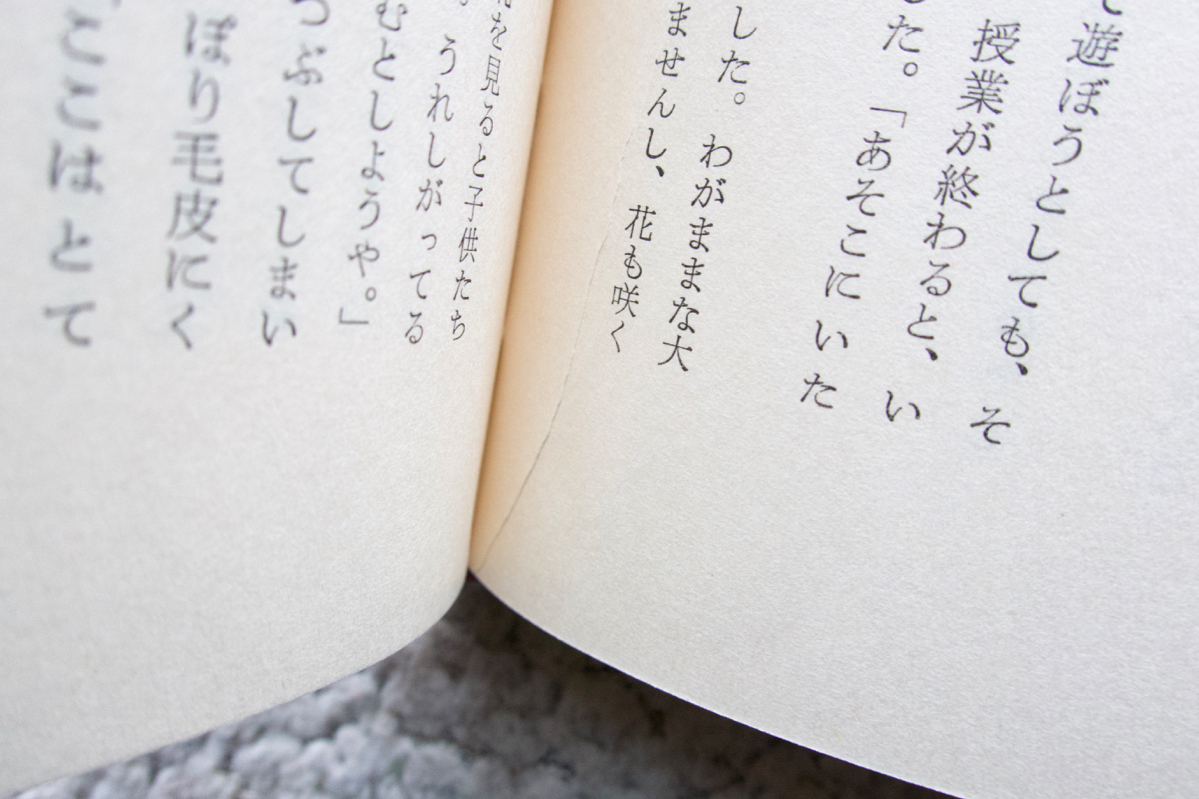 て遊ぼうとしても、そ
授業が終わると、い
した。「あそこにいた
した。わがままな大
ませんし、花も咲く
を見ると子供たち
うれしがってる
むとしようや。」
つぶしてしまい
ぽり毛皮にく
「ここはとて